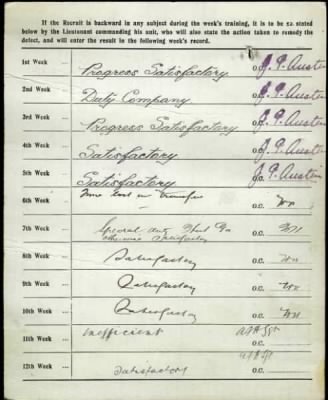 If the Recruit is backward in any subject during the week's training, it is to be so stated
below by the Lieutenant commanding his unit, who will also state the action taken to remedy the
defect, and will enter the result in the following week's record.
1st Week ... Progress Satisfactory O.C. J. P. Austin
2nd Week ... Duty Company O.C. J. P. Austin
3rd Week ... Progress Satisfactory O.C. J. P. Austin
4th Week ... Satisfactory O.C. J. P. Austin
5th Week ... Satisfactory O.C. J. P. Austin
6th Week ... Time lost on transfer O.C.
7th Week ... Special duty
otherwise satisfactory O.C.
8th Week ... Satisfactory O.C.
9th Week ... Satisfactory O.C.
10th Week ... Satisfactory O.C.
11th Week ... inefficient O.C.
12th Week ... Satisfactory O.C.